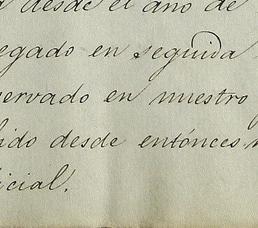 desde el año de
egado en seguida
servado en nuestro
ido desde entónces
icial.